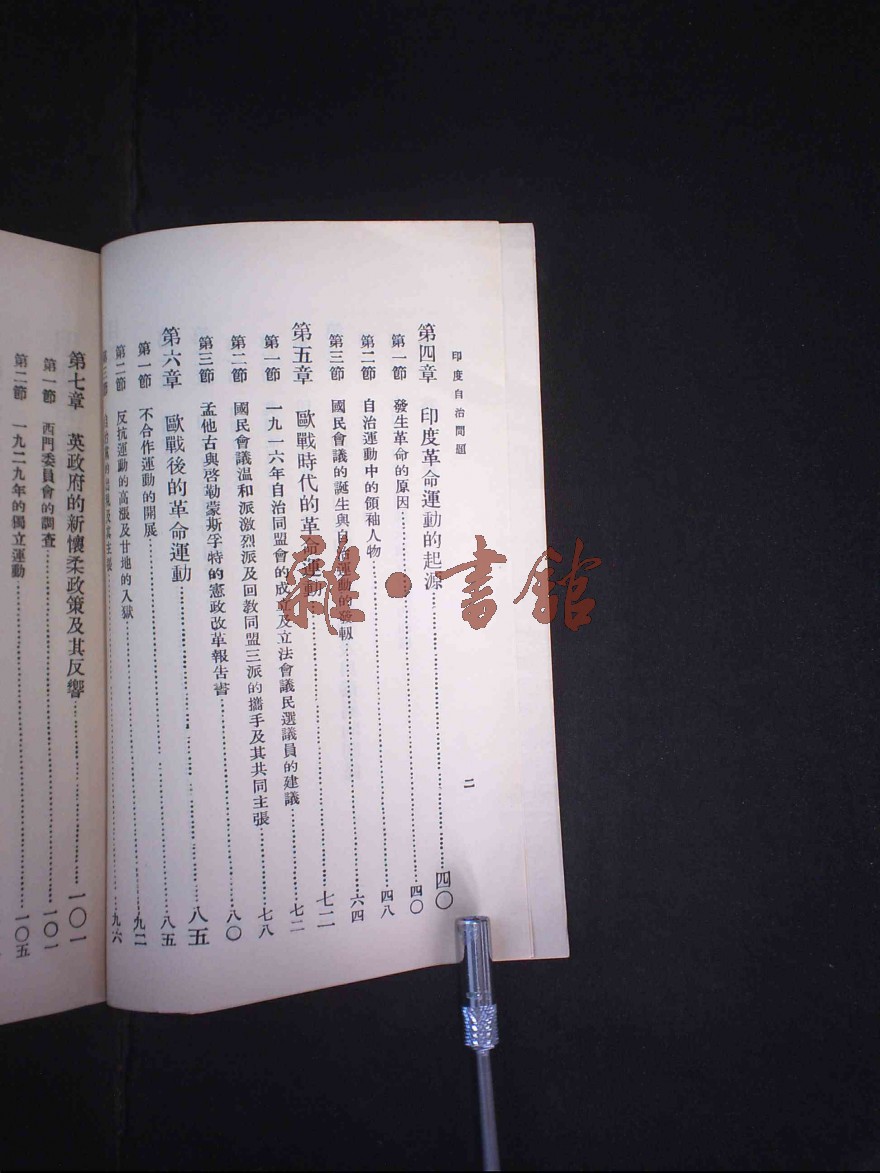 印度自治問題
二
第四章　印度革命運動的起源……四〇
第一節　發生革命的原因……四〇
第二節　自治運動中的領袖人物……四八
第三節　國民會議的誕生與自治運動的發軔……六四
第五章　歐戰時代的革命運動……七二
第一節　一九一六年自治同盟會的成立及立法會議民選議員的建議……七二
第二節　國民會議温和派激烈派及回教同盟三派的攜手及其共同主張……七八
第三節　孟他古與啓勒蒙斯孚特的憲政改革報告書……八〇
第六章　歐戰後的革命運動……八五
第一節　不合作運動的開展……八五
第二節　反抗運動的高漲及甘地的入獄……九二
第三節　自治黨的出現及其主張……九六
第七章　英政府的新懷柔政策及其反響……一〇一
第一節　西門委員會的調查……一〇一
第二節　一九二九年的獨立運動……一〇五
雜·書館